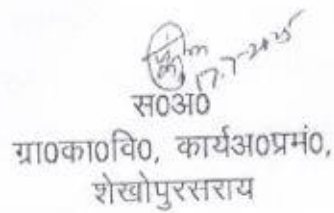 17.7-2025
स0अ0
ग्रा0का0वि0, कार्यअ0प्रमं0,
शेखोपुरसराय